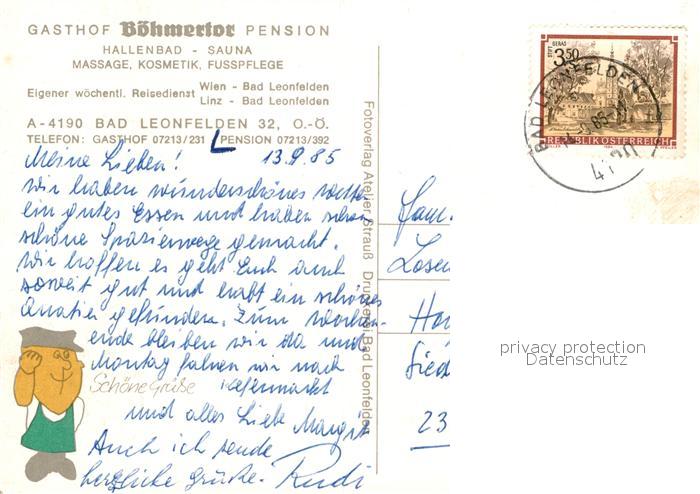 GASTHOF Böhmertor PENSION
HALLENBAD - SAUNA
MASSAGE, KOSMETIK, FUSSPFLEGE
Eigener wöchentl. Reisedienst Wien - Bad Leonfelden
Linz - Bad Leonfelden
A-4190 BAD LEONFELDEN 32, O.-Ö.
TELEFON: GASTHOF 07213/231 PENSION 07213/392
Meine Lieben! 13.9.85
Wir haben wunderschönes Wetter
ein gutes Essen und haben schon
schöne Spazierwege gemacht.
Wir hoffen es geht Euch auch
soweit gut und habt ein schönes
Quartier gefunden. Zum Wochen-
ende bleiben wir da und
Montag fahren wir nach
Schöne Grüße Kefermarkt
und alles Liebe Margit
Auch ich sende
herzliche Grüße. Rudi
Fotoverlag Atelier Strauß Druckerei Bad Leonfelden
STIFT GERAS
3.50
REPUBLIK ÖSTERREICH
BAD LEONFELDEN
4190
Fam.
23
privacy protection
Datenschutz